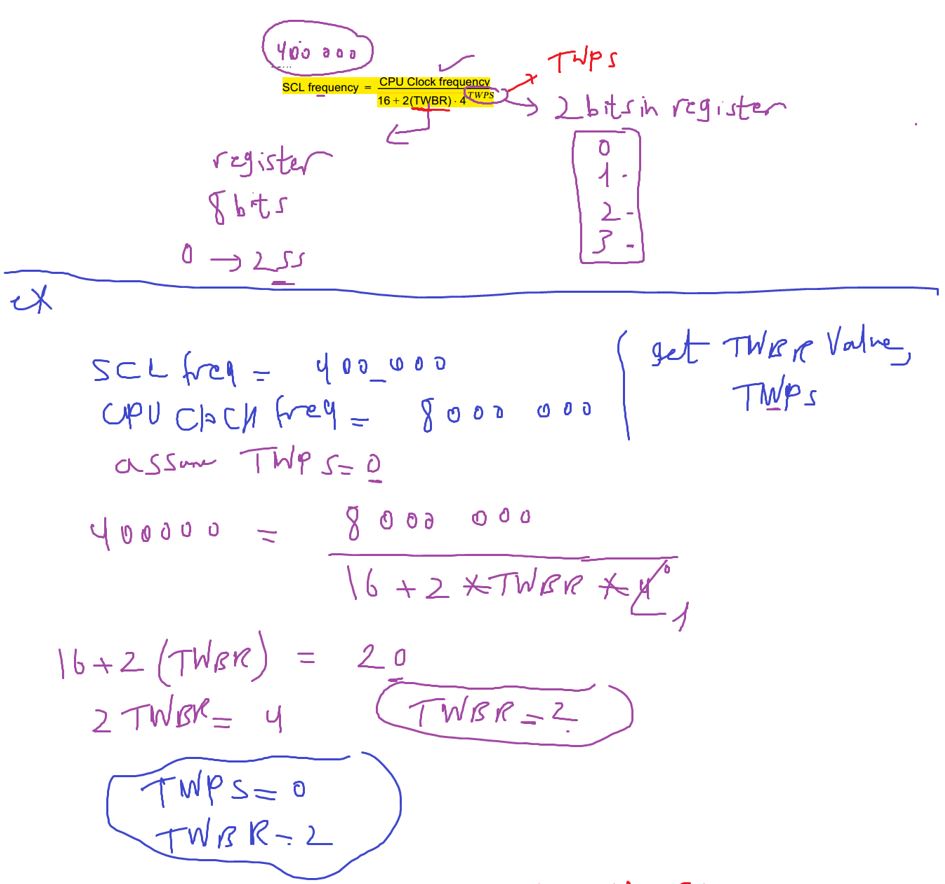 400 000
SCL frequency = CPU Clock frequency / 16 + 2(TWBR) · 4^TWPS
TWPS
2 bits in register
0
1
2
3
register
8 bits
0 → 255
ex
SCL freq = 400_000
CPU Clock freq = 8000 000
get TWBR Value,
TWPS
assume TWPS = 0
400000 = 8 000 000 / 16 + 2 * TWBR * 4^0 1
16 + 2 (TWBR) = 20
2 TWBR = 4
TWBR = 2
TWPS = 0
TWBR = 2